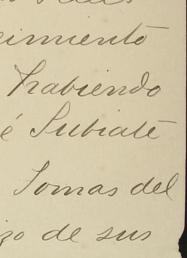 cimiento
habiendo
é Subiate
Tomas del
izo de sus